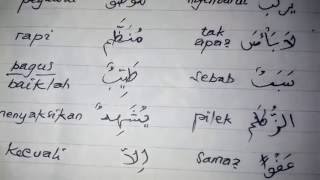 rapi مُنَظَّم tak apa² لَا بَأْسَ
bagus baiklah طَيِّبٌ sebab سَبَبٌ
menyaksikan يُشَهِدُ pilek الزُّكَّم
kecuali إِلَّا sama² عَفْوٌ